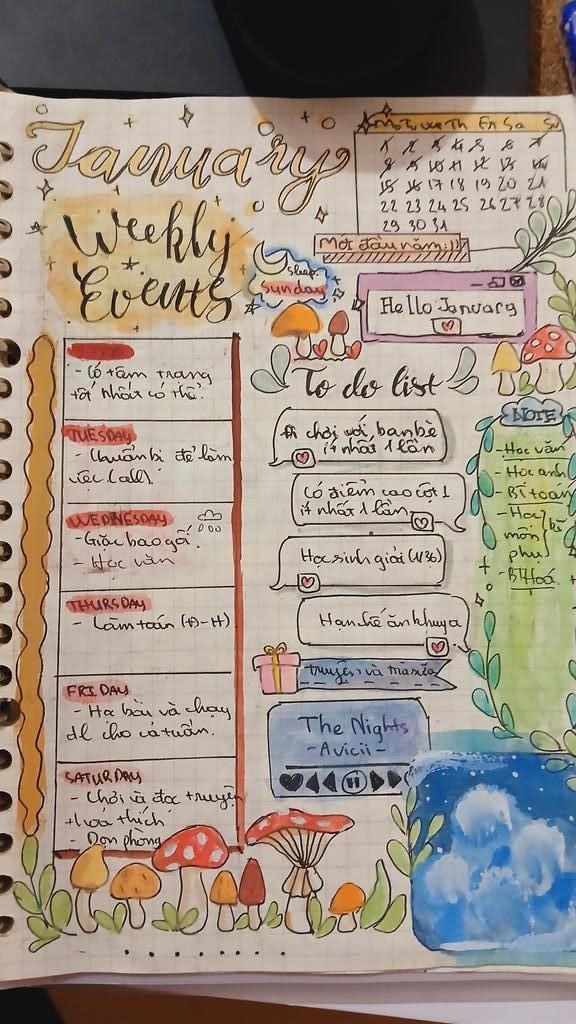 January
Mo Tu We Th Fr Sa Su
1 2 3 4 5 6 7
8 9 10 11 12 13 14
15 16 17 18 19 20 21
22 23 24 25 26 27 28
29 30 31
Một đầu năm:))
Weekly
Events
sleep
Sunday
Hello January
- Có tâm trạng
tốt nhất có thể.
TUESDAY
- Chuẩn bị để làm
việc (all).
WEDNESDAY
- Giặc bao gối.
- Học văn
THURSDAY
- Làm toán (Đ-H)
FRIDAY
- Học bài và chạy
dl cho cả tuần.
SATURDAY
- Chơi và đọc truyện
thích
- Dọn phòng
To do list
Đi chơi với bạn bè
ít nhất 1 lần
Có điểm cao cột 1
ít nhất 1 lần
Học sinh giỏi
Hạn chế ăn khuya
truyện và trà sữa
The Nights
- Avicii -
NOTE
- Học văn
- Học anh
- BT toán
- Học kì
môn
phụ
- BT Hoá.